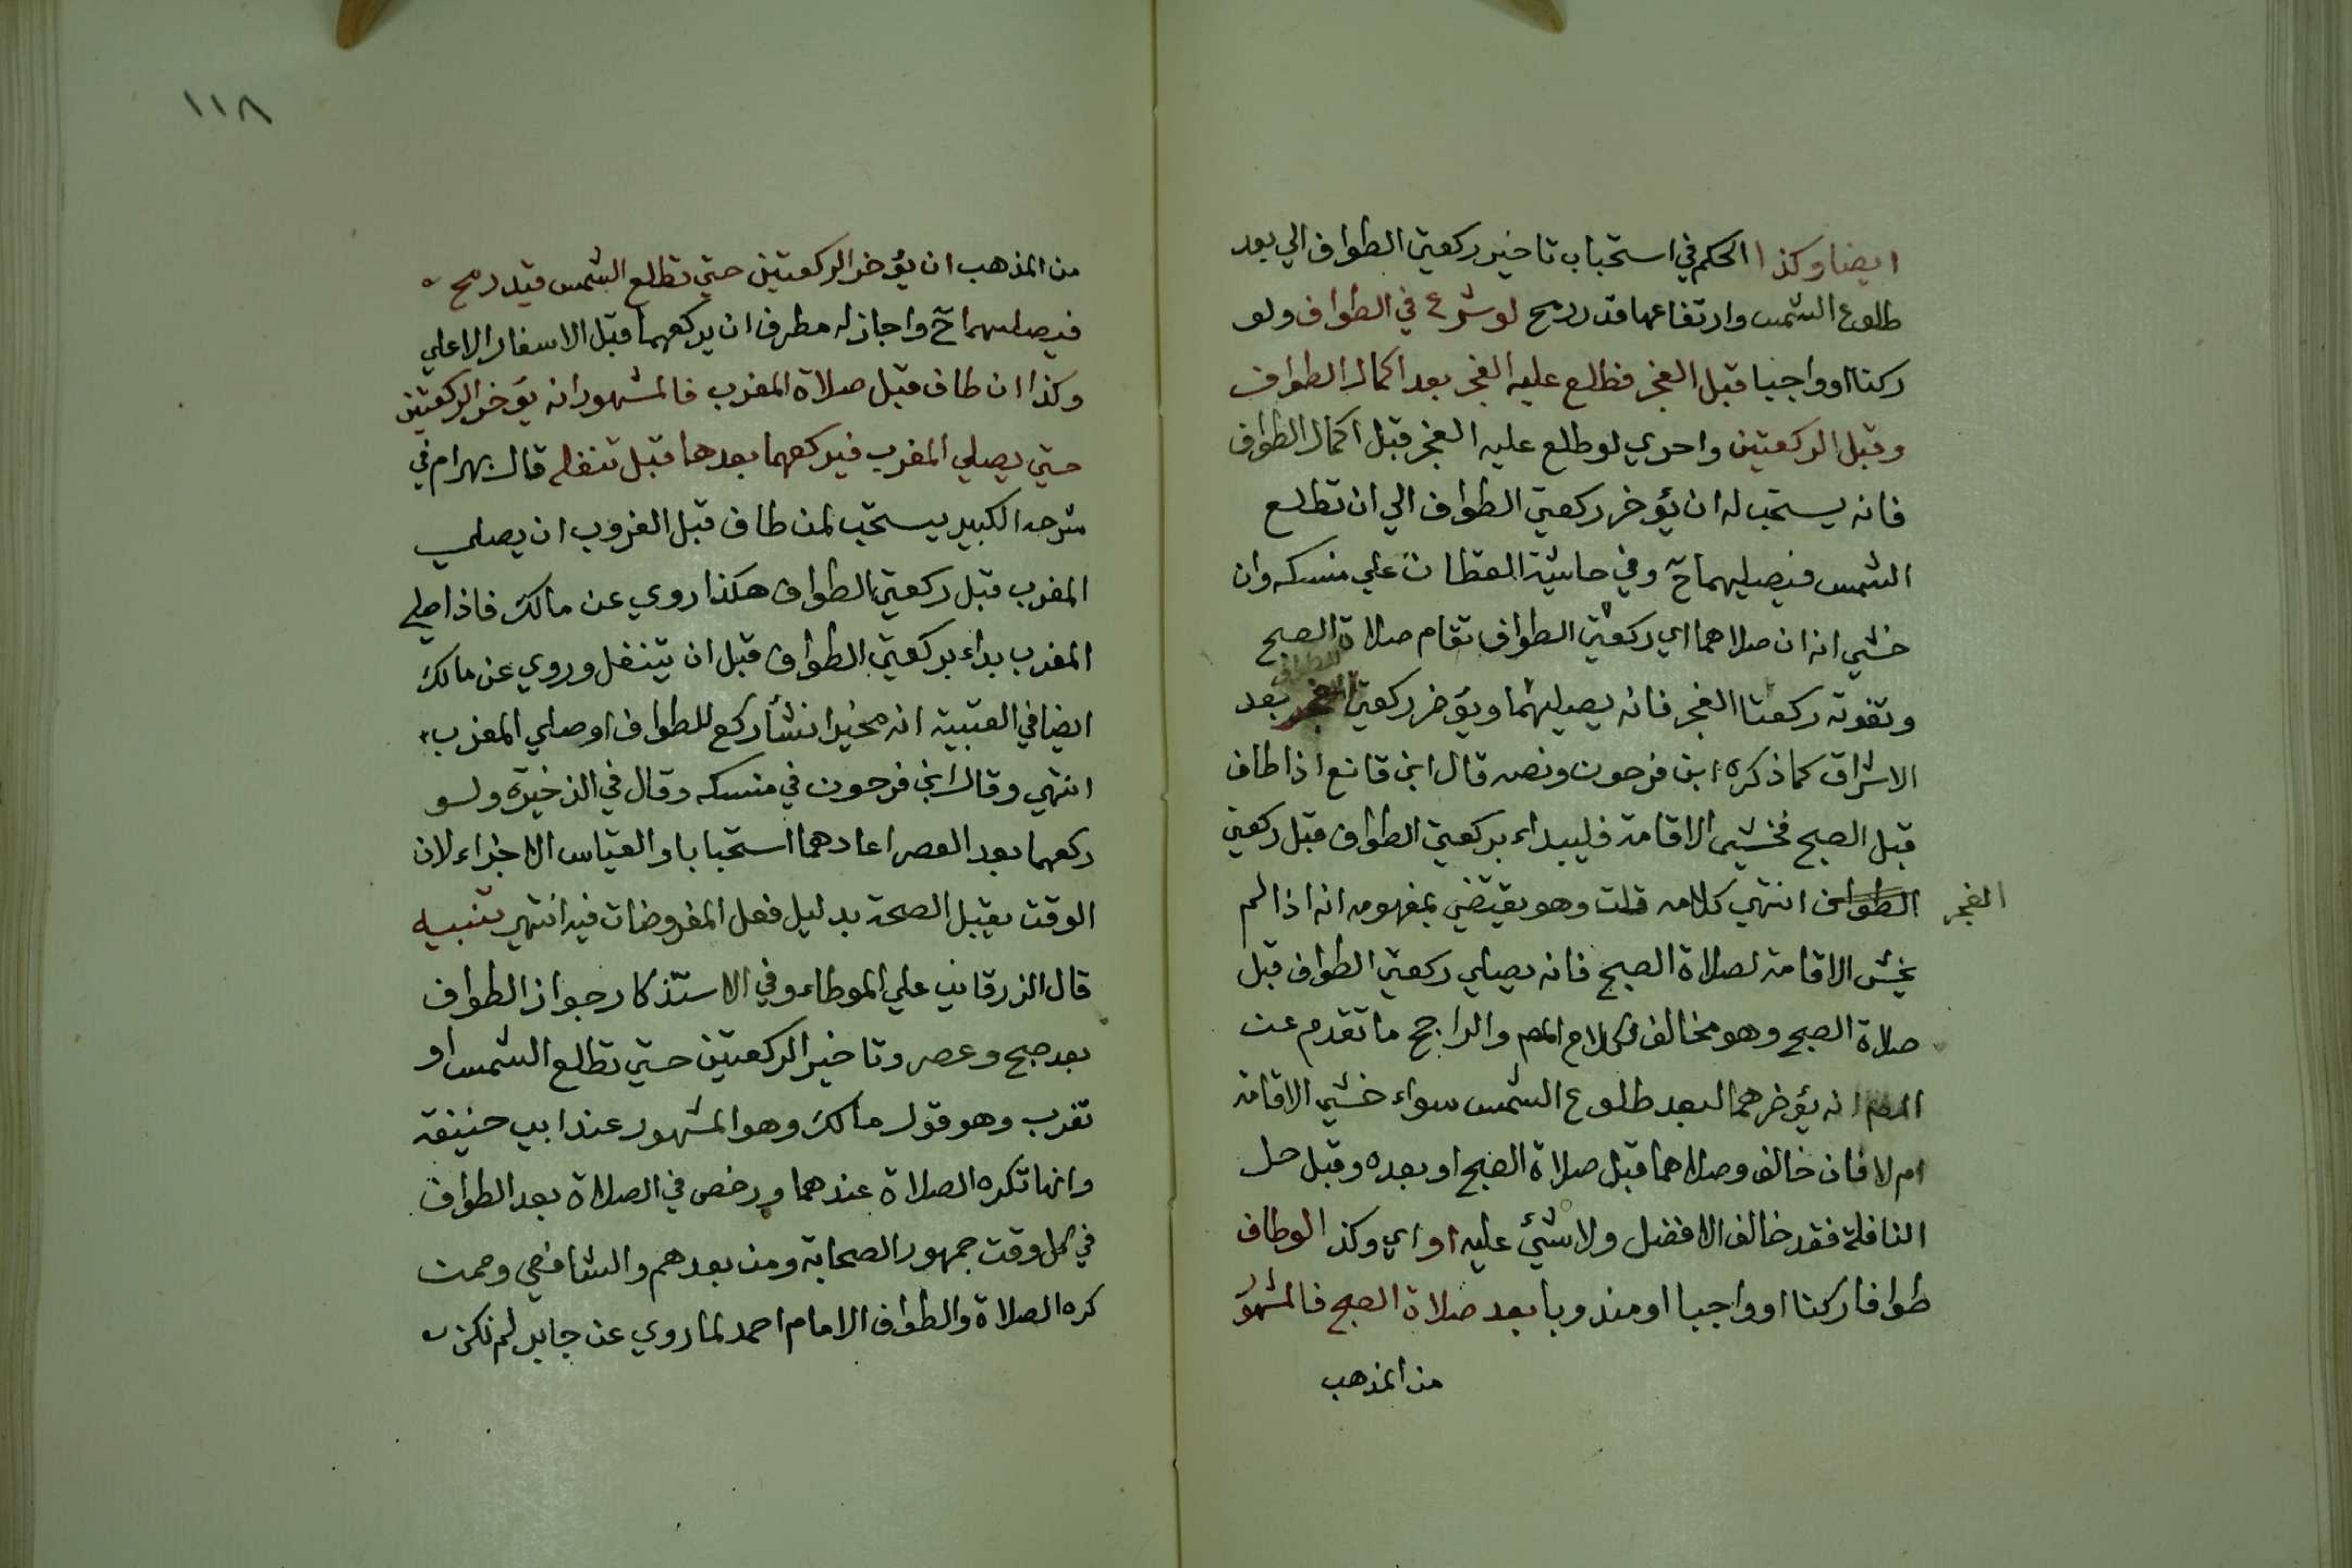 ايضا وكذا الحكم في استحباب تاخير ركعتي الطواف الي بعد
طلوع الشمس وارتفاعها قدر رمح لو شرع في الطواف ولو
ركنا او واجبا قبل الفجر فطلع عليه الفجر بعد اكمال الطواف
وقبل الركعتين واحري لو طلع عليه الفجر قبل اكمال الطواف
فانه يستحب له ان يؤخر ركعتي الطواف الي ان تطلع
الشمس فيصليهما ح وفي حاشية الحطاب علي منسكه وان
خشي انه ان صلاهما اي ركعتي الطواف تقام صلاة الصبح
وتفوته ركعتا الفجر فانه يصليهما ويؤخر ركعتي الطواف بعد
الاشراق كما ذكره ابن فرحون ونصه قال ابن قانع اذا طاف
قبل الصبح فخشي الاقامة فليبداء بركعتي الطواف قبل ركعتي
الفجر
الطواف انتهي كلامه قلت وهو يقتضي بمفهومه انه اذا لم
يخش الاقامة لصلاة الصبح فانه يصلي ركعتي الطواف قبل
صلاة الصبح وهو مخالف لكلام المص والراجح ما تقدم عن
المص انه يؤخرهما لبعد طلوع الشمس سواء خشي الاقامة
ام لا فان خالف وصلاهما قبل صلاة الصبح او بعده وقبل حل
النافلة فقد خالف الافضل ولا شئ عليه او اي وكذا لو طاف
طوافا ركنا او واجبا او مندوبا بعد صلاة الصبح فالمشهور
من المذهب
١١٨
من المذهب ان يؤخر الركعتين حتي تطلع الشمس قيد رمح
فيصليهما ح واجاز له مطرف ان يركعهما قبل الاسفار الاعلي
وكذا ان طاف قبل صلاة المغرب فالمشهور انه يؤخر الركعتين
حتي يصلي المغرب فيركعهما بعدها قبل تنفله قال بهرام في
شرحه الكبير يستحب لمن طاف قبل الغروب ان يصلي
المغرب قبل ركعتي الطواف هكذا روي عن مالك فاذا صلي
المغرب بداء بركعتي الطواف قبل ان يتنفل وروي عن مالك
ايضا في العتبية انه مخير ان شأ ركع للطواف او صلي المغرب
انتهي وقال ابن فرحون في منسكه وقال في الذخيرة ولو
ركعهما بعد العصر اعادهما استحبابا والقياس الاجزاء لان
الوقت يقبل الصحة بدليل فعل المفروضات فيه انتهي تنبيه
قال الزرقاني علي الموطاء وفي الاستذكار جواز الطواف
بعد صبح وعصر وتاخير الركعتين حتي تطلع الشمس او
تغرب وهو قول مالك وهو المشهور عند ابي حنيفة
وانها تكره الصلاة عندهما ورخص في الصلاة بعد الطواف
في كل وقت جمهور الصحابة ومن بعدهم والشافعي وممن
كره الصلاة والطواف الامام احمد لما روي عن جابر لم نكن